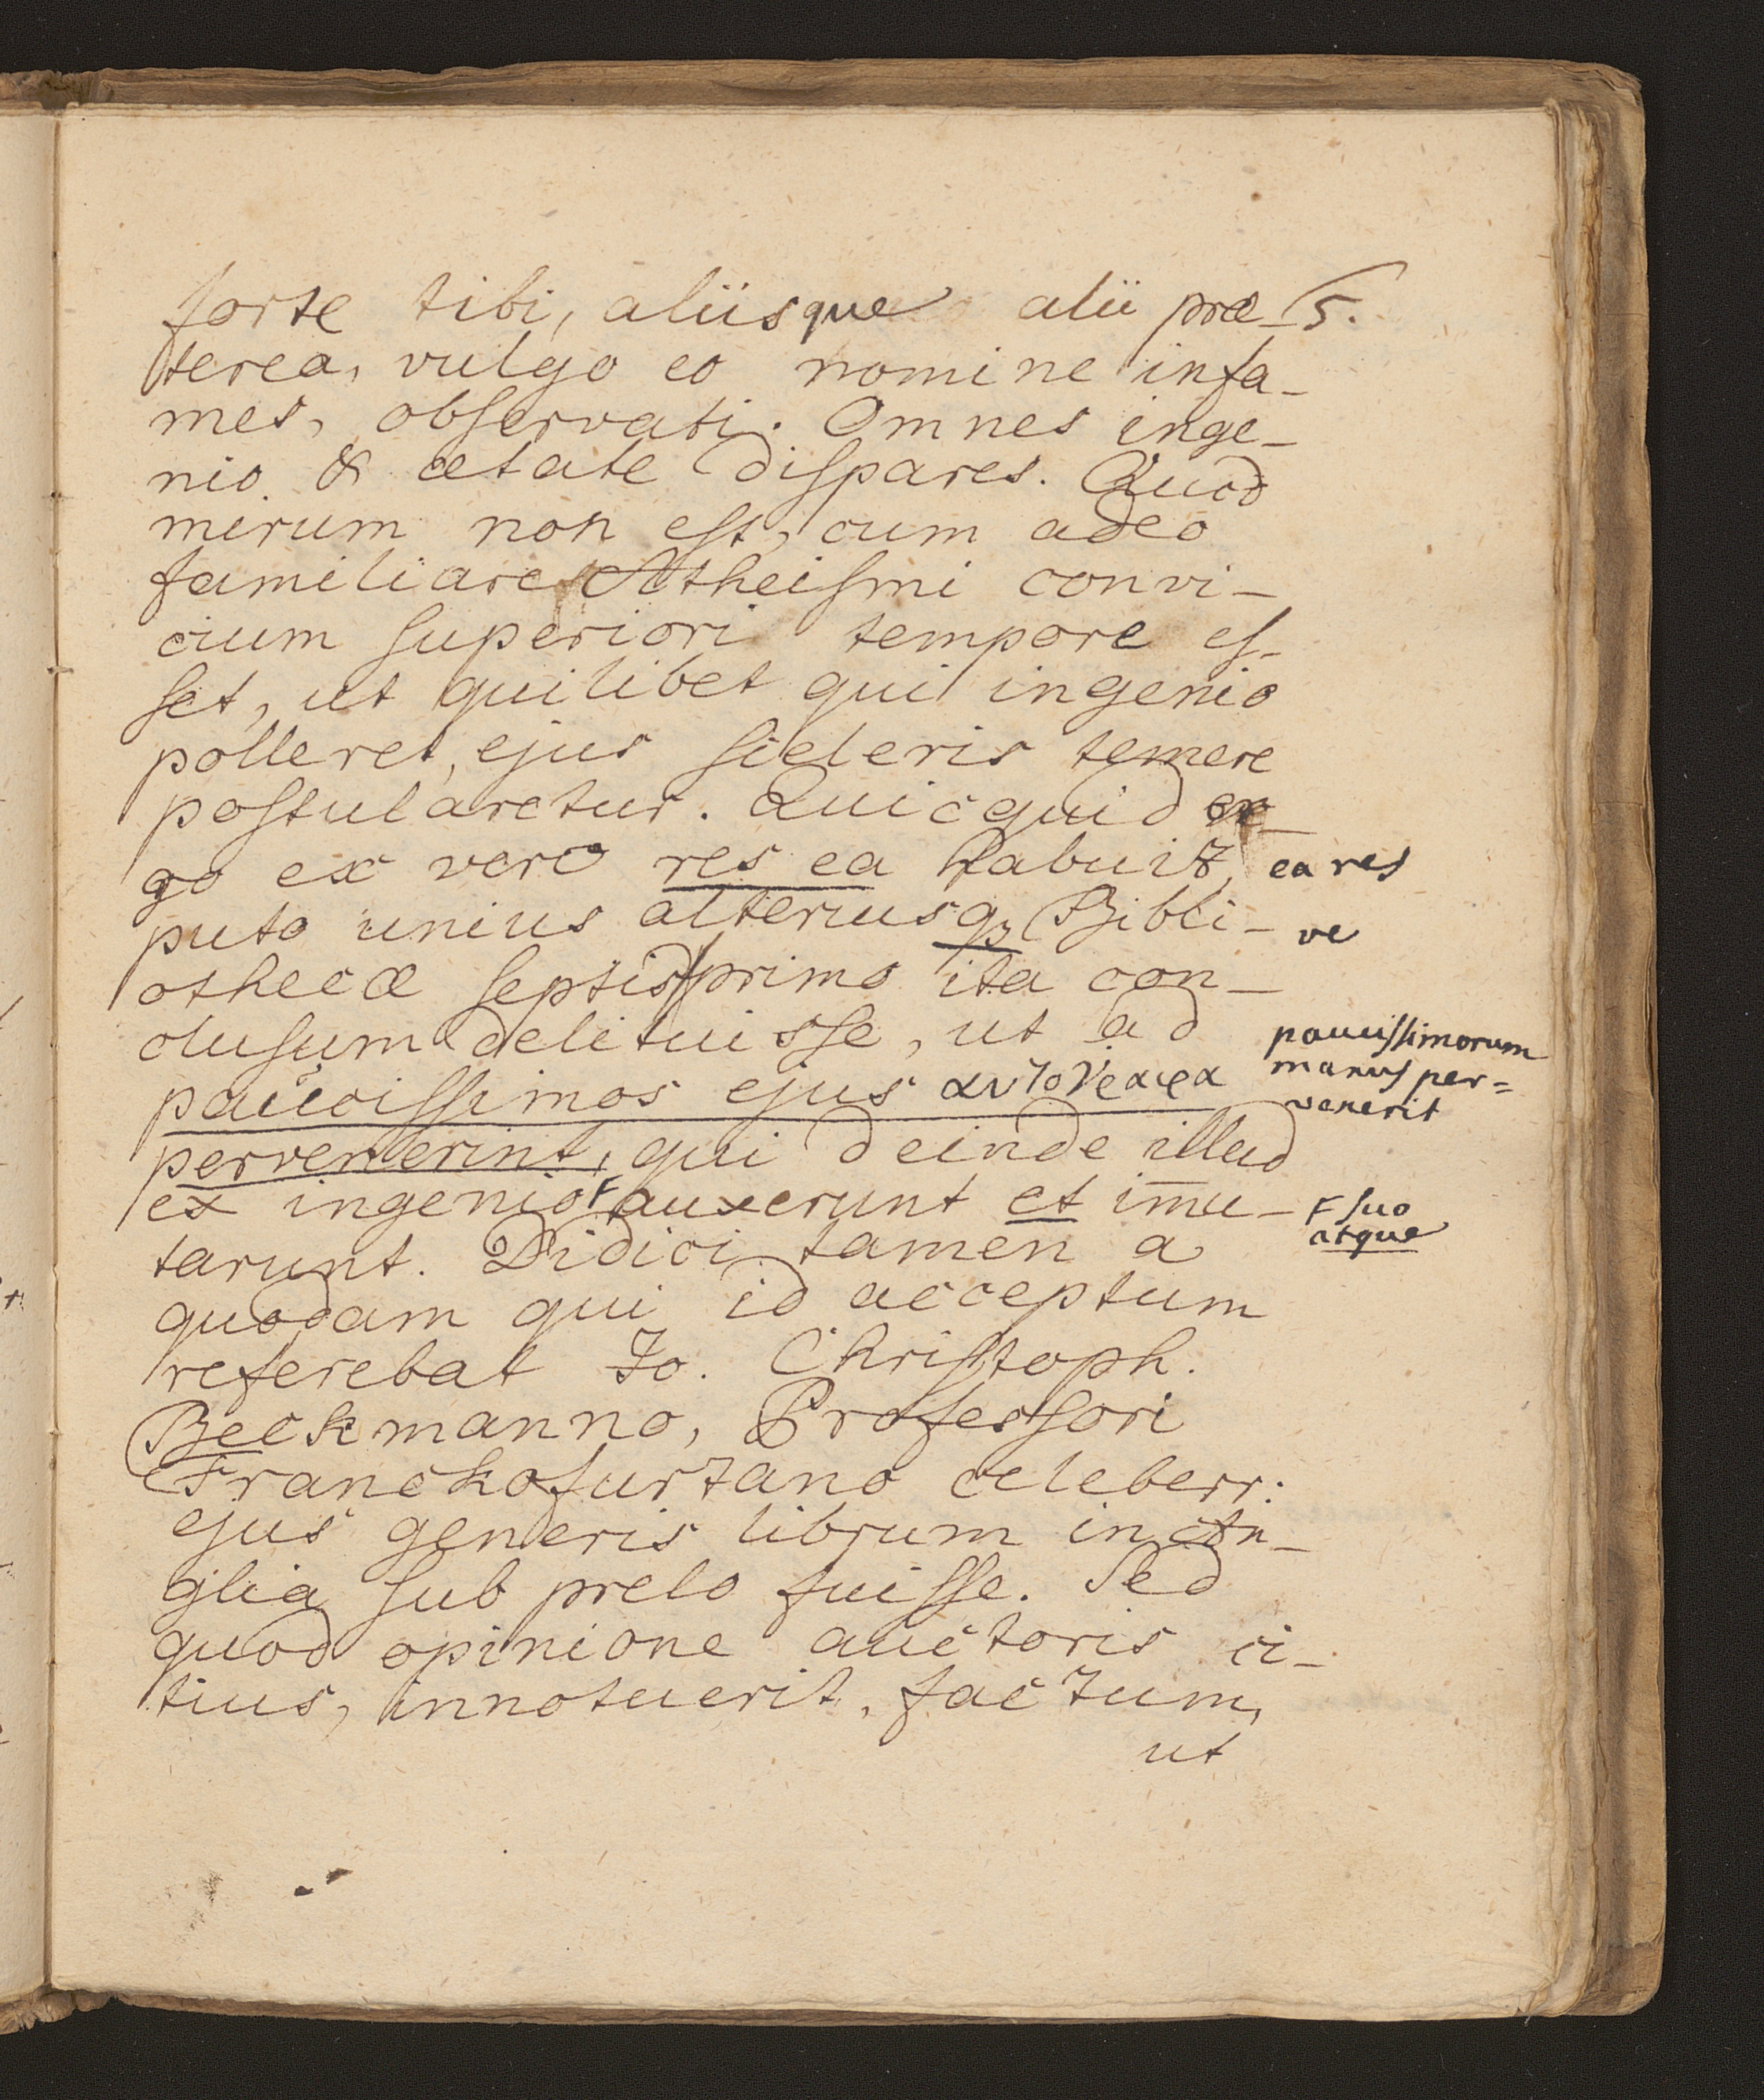 forte tibi, aliisque alii præ- 5.
terea, vulgo eo nomine infa-
mes, obſervati. Omnes inge-
nio & ætate diſpares. Quod
mirum non eſt, cum adeo
familiare Atheiſmi convi-
cium ſuperiori tempore eſ-
ſet, ut quilibet qui ingenio
polleret, ejus ſceleris temere
poſtularetur. Quicquid er-
go ex vero res ea habuit, ea res
puto unius alteriusq₃ Bibli- ve
othecæ ſeptis primo ita con-
cluſum delituisſe, ut ad
pauciſſimorum
pauciſſimos ejus αυτογραφα manus per=
venerit
pervenerint, qui deinde illud
ex ingenio F auxerunt et im̄u- F ſuo
atque
tarunt. Didici tamen a
quodam qui id acceptum
referebat Jo. Chriſtoph.
Beckmanno, Profesſori
Franckofurtano celeberr:
ejus generis librum in An-
glia ſub prelo fuiſſe. Sed
quod opinione auctoris ci-
tius, innotuerit, factum,
ut